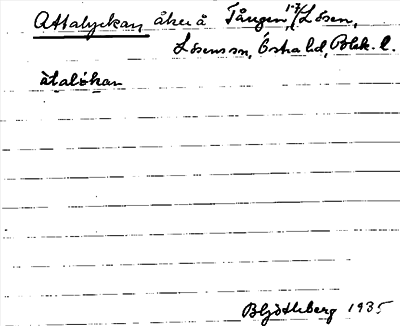 Attalyckan åker å Tången 1:7 Lösen,
Lösens sn, Östra hd, Blek. l.
àtalökan
B Ljöstheberg 1935